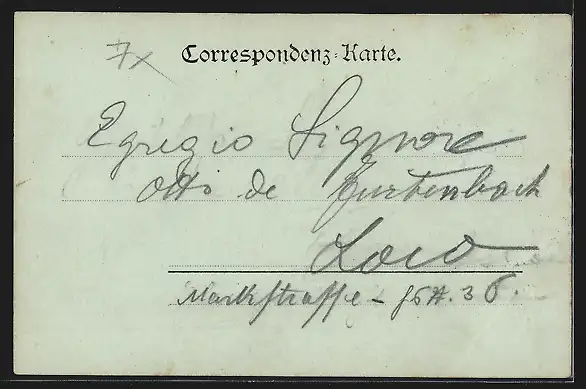 7x
Correspondenz-Karte.
Egregio Signore
Otto de Furtenbach
Loco
Marktstrasse - 36.